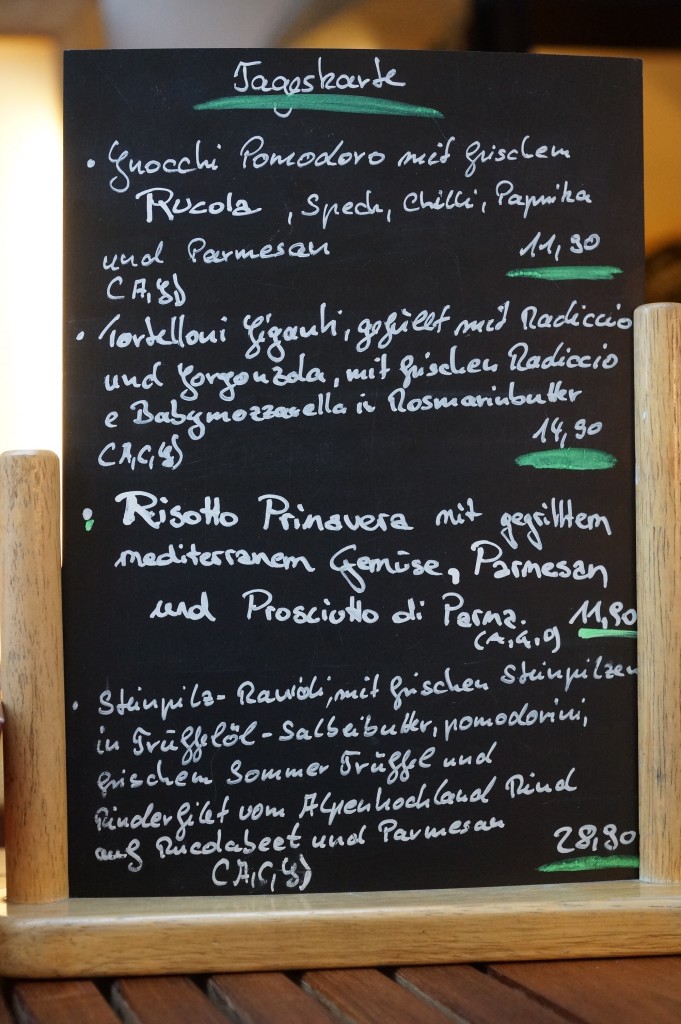 Tageskarte
• Gnocchi Pomodoro mit frischem
Rucola, Speck, Chilli, Paprika
und Parmesan 11,90
(A,G)
• Tortelloni Giganti, gefüllt mit Radiccio
und Gorgonzola, mit frischen Radiccio
e Babymozzarella in Rosmarinbutter
14,90
(A,C,G)
• Risotto Primavera mit gegrilltem
mediterranem Gemüse, Parmesan
und Prosciutto di Parma. 11,90
(A,G,
• Steinpilz-Ravioli, mit frischen Steinpilzen
in Trüffelöl-Salbeibutter, pomodorini,
frischem Sommer Trüffel und
Rinderfilet vom Alpenhochland Rind
auf Rucolabeet und Parmesan 28,90
(A,C,G)